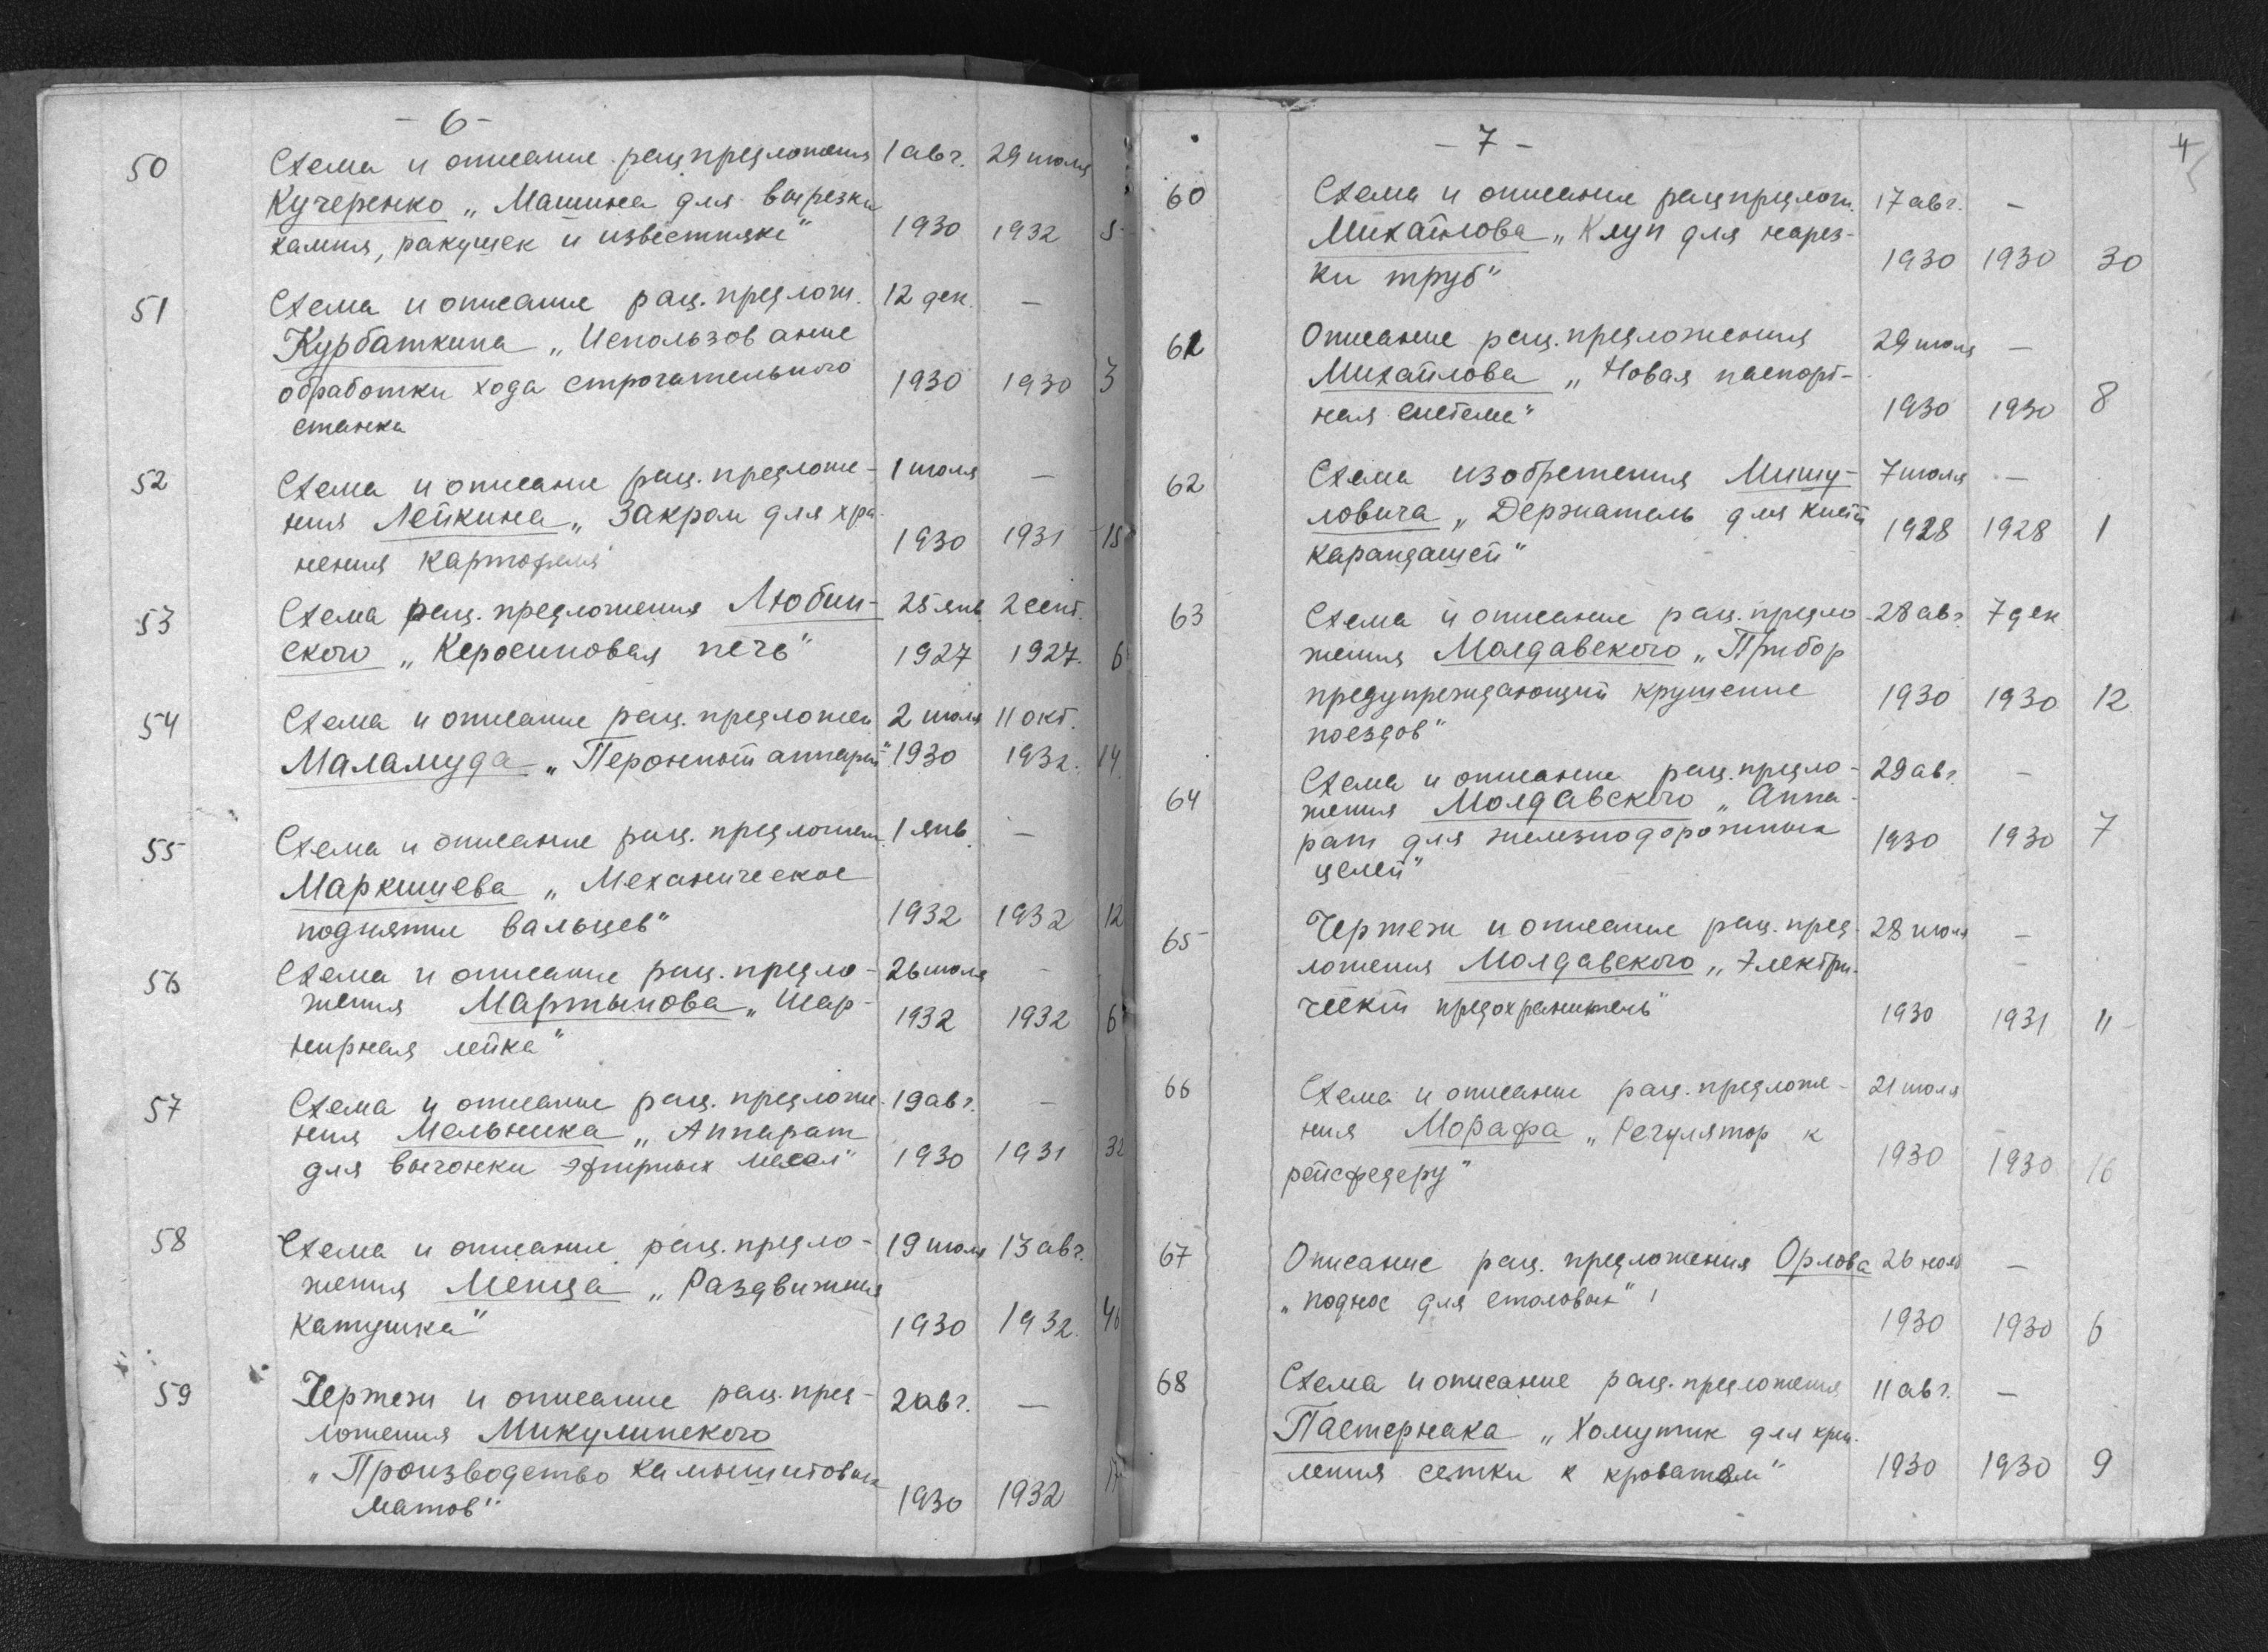 - 6 -
50 Схема и описание рац. предложения 1 авг. 29 июля
Кучеренко „Машина для вырезки
камня, ракушек и известняка" 1930 1932 5
51 Схема и описание рац. предлож. 12 дек. —
Курбаткина „Использование
обработки хода строгательного 1930 1930 3
станка
52 Схема и описание рац. предложе- 1 июля —
ния Лейкина „Закром для хра-
нения картофеля" 1930 1931 15
53 Схема рац. предложения Любин- 25 янв. 2 сент.
ского „Керосиновая печь" 1927 1927. 6
54 Схема и описание рац. предложен. 2 июля 11 окт.
Маламуда „Перонный аппарат" 1930 1932. 14
55 Схема и описание рац. предложен. 1 янв. —
Маркишева „Механическое
поднятие вальцев" 1932 1932 12
56 Схема и описание рац. предло- 26 июля -
жения Мартынова „Шар-
1932 1932 6
нирная лейка"
57 Схема и описание рац. предложе- 19 авг. —
ния Мельника „Аппарат
для выгонки эфирных масел" 1930 1931 32
58 Схема и описание рац. предло- 19 июля 13 авг.
жения Менца „Раздвижная
катушка" 1930 1932. 46
59 Чертежи и описание рац. пред- 2 авг. —
ложения Микулинского
„Производство камышитовых
матов" 1930 1932
- 7 - 4
60 Схема и описание рац предлож. 17 авг. —
Михайлова „Клуп для нарез-
ки труб" 1930 1930 30
61 Описание рац. предложения 29 июля —
Михайлова „Новая паспорт-
ная система" 1930 1930 8
62 Схема изобретения Мишу- 7 июля —
ловича „Держатель для кист.
карандашей" 1928 1928 1
63 Схема и описание рац. предло- 28 авг. 7 дек
жения Молдавского „Прибор
предупреждающий крушение 1930 1930 12
поездов"
64 Схема и описание рац. предло- 29 авг. —
жения Молдавского „Аппа-
рат для железнодорожных 1930 1930 7
целей"
65 Чертежи и описание рац. пред- 28 июля —
ложения Молдавского „Электри-
ческий предохранитель" 1930 1931 11
66 Схема и описание рац. предложе- 21 июля
ния Морафа „Регулятор к
рейсфедеру" 1930 1930 16
67 Описание рац. предложения Орлова 26 нояб —
„поднос для столовых" 1930 1930 6
68 Схема и описание рац. предложения 11 авг. —
Пастернака „Хомутик для креп-
ления сетки к кроватям" 1930 1930 9